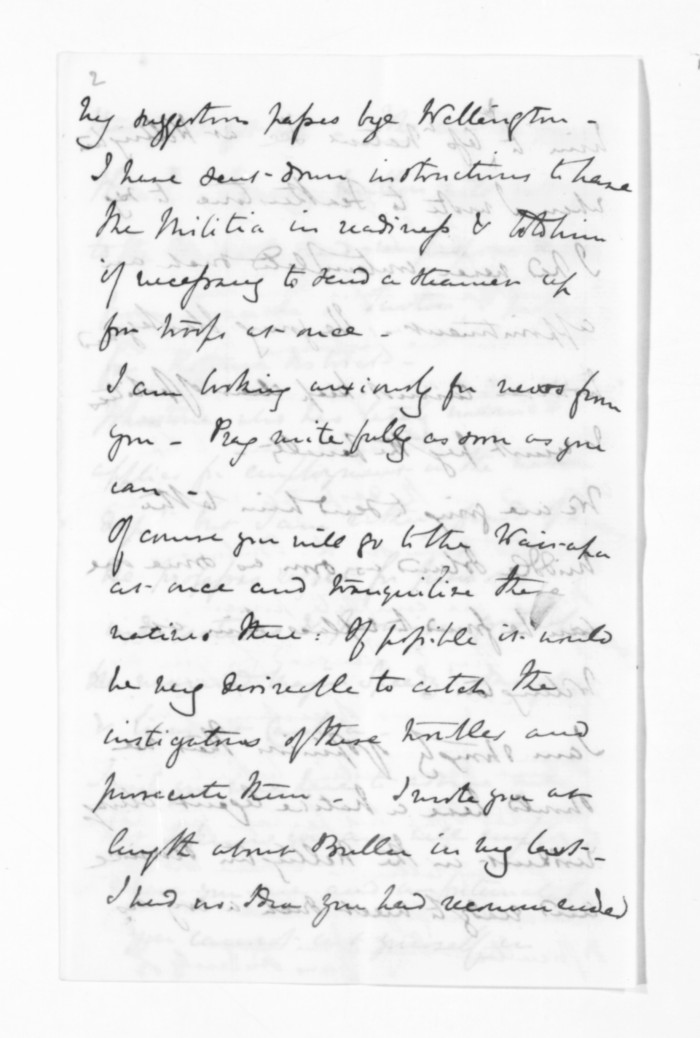 2
my suggestions papers bye Wellington -
I have sent down instructions to have
the Militia in readiness & told him
if necessary to send a steamer up
for troops at once -
I am looking anxiously for news from
you - Pray write fully as soon as you
can -
Of course you will go to the Wairarapa
at once and tranquilise the
natives there: If possible it would
be very desirable to catch the
instigators of these troubles and
prosecute them - I wrote you at
length about Buller in my last -
I had no idea you had recommended